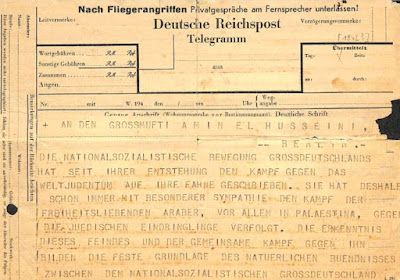 Nach Fliegerangriffen Privatgespräche am Fernsprecher unterlassen!
Leitvermerke:
Deutsche Reichspost
Verzögerungsvermerke:
Telegramm
Wortgebühren RM Rpf
Sonstige Gebühren RM Rpf
Zusammen RM Rpf
Angen.:
aus
Übermittelt
Tag: Zeit:
an: durch:
Nr. mit W. 194 / um Uhr. Weg-
angabe
+ AN DEN GROSSMUFTI AMIN EL HUSSEINI ,
-- BERLIN.--
DIE NATIONALSOZIALISTISCHE BEWEGUNG GROSSDEUTSCHLANDS
HAT SEIT IHRER ENTSTEHUNG DEN KAMPF GEGEN DAS
WELTJUDENTUM AUF IHRE FAHNE GESCHRIEBEN. SIE HAT DESHALB
SCHON IMMER MIT BESONDERER SYMPATHIE DEN KAMPF DER
FREIHEITSLIEBENDEN ARABER, VOR ALLEM IN PALAESTINA, GEGEN
DIE JUEDISCHEN EINDRINGLINGE VERFOLGT. DIE ERKENNTNIS
DIESES FEINDES UND DER GEMEINSAME KAMPF GEGEN IHN
BILDEN DIE FESTE GRUNDLAGE DES NATUERLICHEN BUENDNISSES
ZWISCHEN DEM NATIONALSOZIALISTISCHEN GROSSDEUTSCHLAND